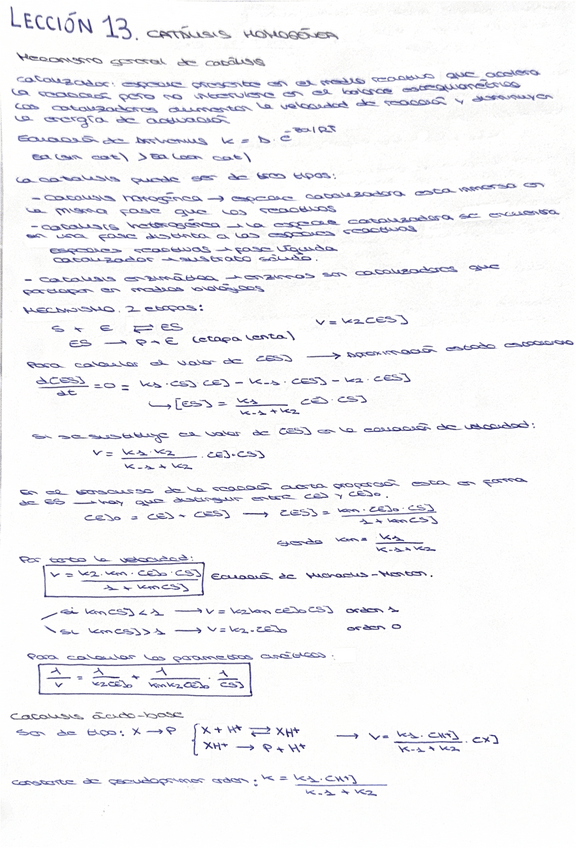 LECCIÓN 13. CATÁLISIS HOMOGÉNEA
Mecanismo general de catálisis
catalizador: especie presente en el medio reactivo que acelera
la reacción pero no interviene en el balance estequiométrico
Los catalizadores aumentan la velocidad de reacción y disminuyen
la energía de activación
Ecuación de Arrhenius K = A · e^-Ea/RT
Ea (sin cat) > Ea (con cat)
La catálisis puede ser de tres tipos:
- Catálisis homogénea → especie catalizadora está inmersa en
la misma fase que los reactivos
- catálisis heterogénea → la especie catalizadora se encuentra
en una fase distinta a las especies reactivas
especies reactivas → fase líquida
catalizador → sustrato sólido.
- Catálisis enzimática → enzimas son catalizadores que
participan en medios biológicos
MECANISMO. 2 etapas:
S + E ⇄ ES V = K2[ES]
ES → P + E (etapa lenta)
Para calcular el valor de [ES] → Aproximación estado estacionario
d[ES]/dt = 0 = K1 · [S] [E] - K-1 · [ES] - K2 · [ES]
↳ [ES] = K1/(K-1 + K2) [E] · [S]
Si se sustituye el valor de [ES] en la ecuación de velocidad:
V = K1 · K2/(K-1 + K2) · [E] · [S]
En el transcurso de la reacción cierta proporción está en forma
de ES → hay que distinguir entre [E] y [E]o.
[E]o = [E] + [ES] → [ES] = Km · [E]o · [S]/(1 + Km[S])
siendo Km = K1/(K-1 + K2)
Por tanto la velocidad:
V = K2 · Km · [E]o · [S]/(1 + Km[S]) Ecuación de Michaelis-Menten.
si Km[S] < 1 → V = K2Km[E]o[S] orden 1
si Km[S] >> 1 → V = K2 · [E]o orden 0
Para calcular los parámetros cinéticos:
1/V = 1/K2[E]o + 1/KmK2[E]o · 1/[S]
Catálisis ácido-base
Son de tipo: X → P { X + H+ ⇄ XH+ → V = K1 · [H+]/(K-1 + K2) · [X]
XH+ → P + H+
constante de pseudoprimer orden: K = K1 · [H+]/(K-1 + K2)